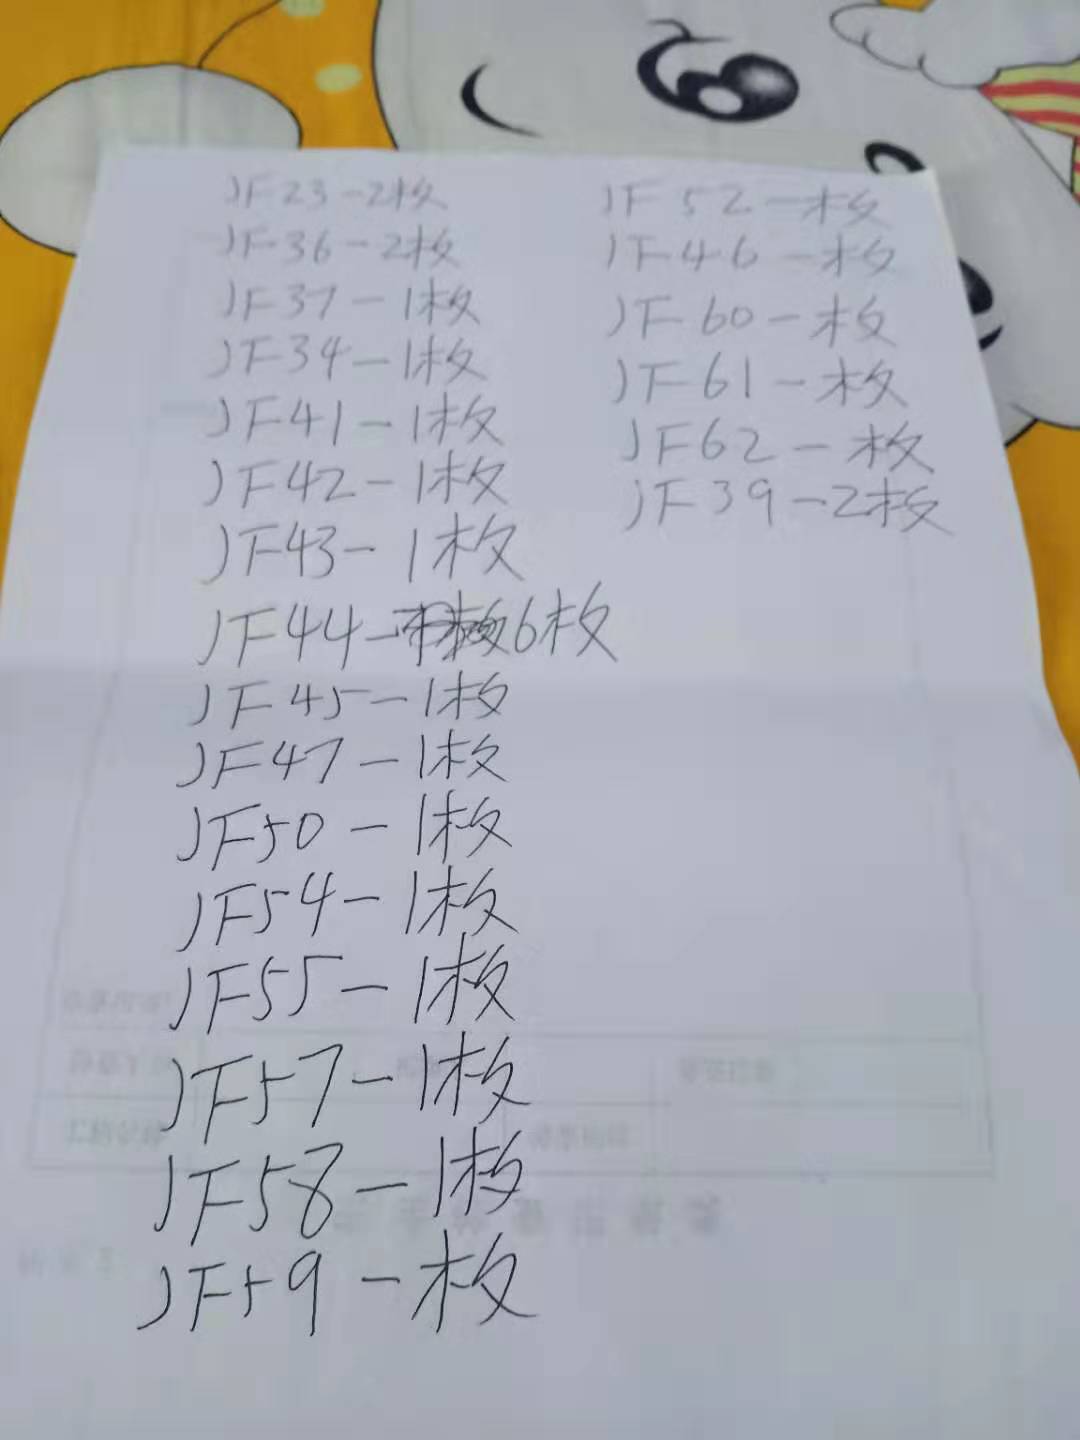 JF23-2枚
JF36-2枚
JF37-1枚
JF34-1枚
JF41-1枚
JF42-1枚
JF43-1枚
JF44-6枚
JF45-1枚
JF47-1枚
JF50-1枚
JF54-1枚
JF55-1枚
JF57-1枚
JF58-1枚
JF59-枚
JF52一枚
JF46-枚
JF60-枚
JF61-枚
JF62-枚
JF39-2枚